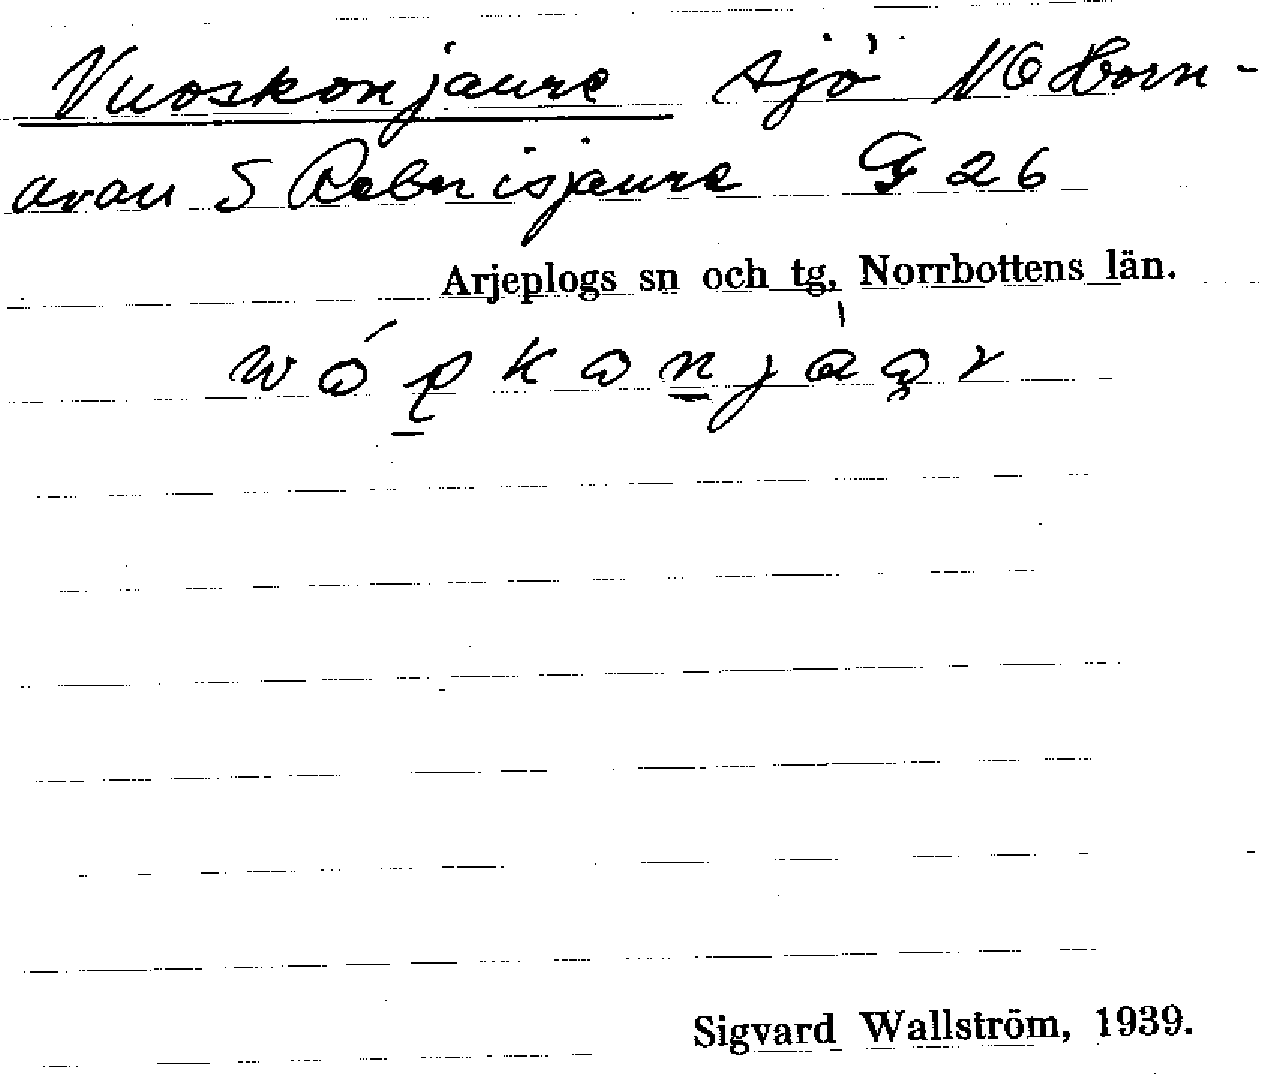 Vuoskonjaure sjö NO Horn-
avan S Rebnisjaure G 26
Arjeplogs sn och tg, Norrbottens län.
Sigvard Wallström, 1939.